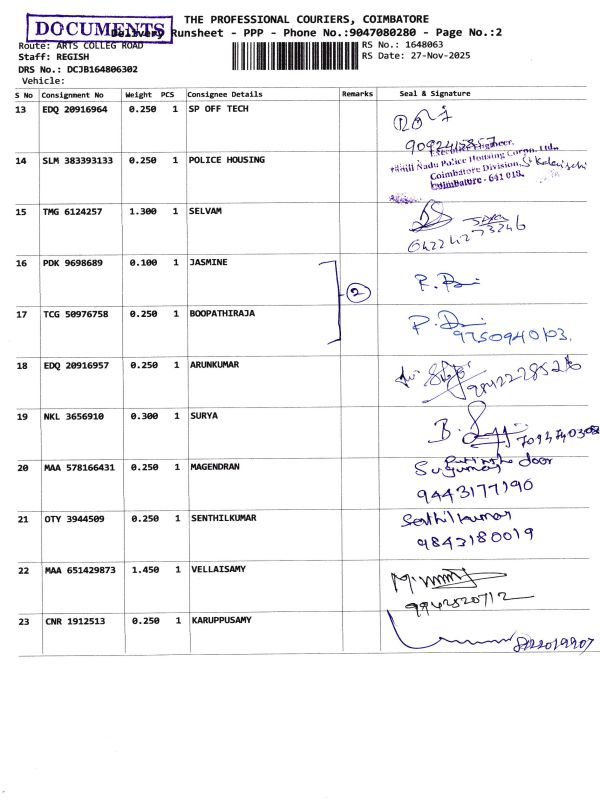 THE PROFESSIONAL COURIERS, COIMBATORE
DOCUMENTS
Delivery Runsheet - PPP - Phone No.:9047080280 - Page No.:2
Route: ARTS COLLEG ROAD
RS No.: 1648063
Staff: REGISH
RS Date: 27-Nov-2025
DRS No.: DCJB164806302
Vehicle:
S No Consignment No Weight PCS Consignee Details Remarks Seal & Signature
13 EDQ 20916964 0.250 1 SP OFF TECH
14 SLM 383393133 0.250 1 POLICE HOUSING
Executive Engineer,
Tamil Nadu Police Housing Corpn. Ltd.,
Coimbatore Division,
Coimbatore - 641 018.
15 TMG 6124257 1.300 1 SELVAM
16 PDK 9698689 0.100 1 JASMINE
2
17 TCG 50976758 0.250 1 BOOPATHIRAJA
18 EDQ 20916957 0.250 1 ARUNKUMAR
19 NKL 3656910 0.300 1 SURYA
20 MAA 578166431 0.250 1 MAGENDRAN
door
9443177190
21 OTY 3944509 0.250 1 SENTHILKUMAR
Senthilkumar
9843180019
22 MAA 651429873 1.450 1 VELLAISAMY
9942520712
23 CNR 1912513 0.250 1 KARUPPUSAMY